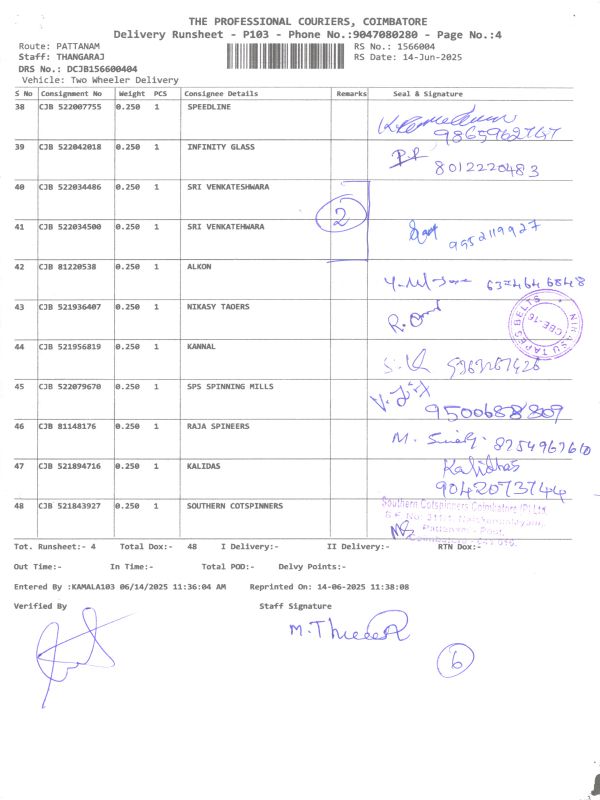 THE PROFESSIONAL COURIERS, COIMBATORE
Delivery Runsheet - P103 - Phone No.:9047080280 - Page No.:4
Route: PATTANAM RS No.: 1566004
Staff: THANGARAJ RS Date: 14-Jun-2025
DRS No.: DCJB156600404
Vehicle: Two Wheeler Delivery
S No Consignment No Weight PCS Consignee Details Remarks Seal & Signature
38 CJB 522007755 0.250 1 SPEEDLINE
9865962747
39 CJB 522042018 0.250 1 INFINITY GLASS
8012220483
40 CJB 522034486 0.250 1 SRI VENKATESHWARA
2
41 CJB 522034500 0.250 1 SRI VENKATEHWARA
9952119927
42 CJB 81220538 0.250 1 ALKON
43 CJB 521936407 0.250 1 NIKASY TAOERS
NIKASU TAPES BELTS CBE-16
44 CJB 521956819 0.250 1 KANNAL
45 CJB 522079670 0.250 1 SPS SPINNING MILLS
46 CJB 81148176 0.250 1 RAJA SPINEERS
8754967610
47 CJB 521894716 0.250 1 KALIDAS
Kalidhas
9042073744
48 CJB 521843927 0.250 1 SOUTHERN COTSPINNERS
Southern Cotspinners Coimbatore (P) Ltd.
Pattanam - Post,
Tot. Runsheet:- 4 Total Dox:- 48 I Delivery:- II Delivery:- RTN Dox:-
Out Time:- In Time:- Total POD:- Delvy Points:-
Entered By :KAMALA103 06/14/2025 11:36:04 AM Reprinted On: 14-06-2025 11:38:08
Verified By Staff Signature
6